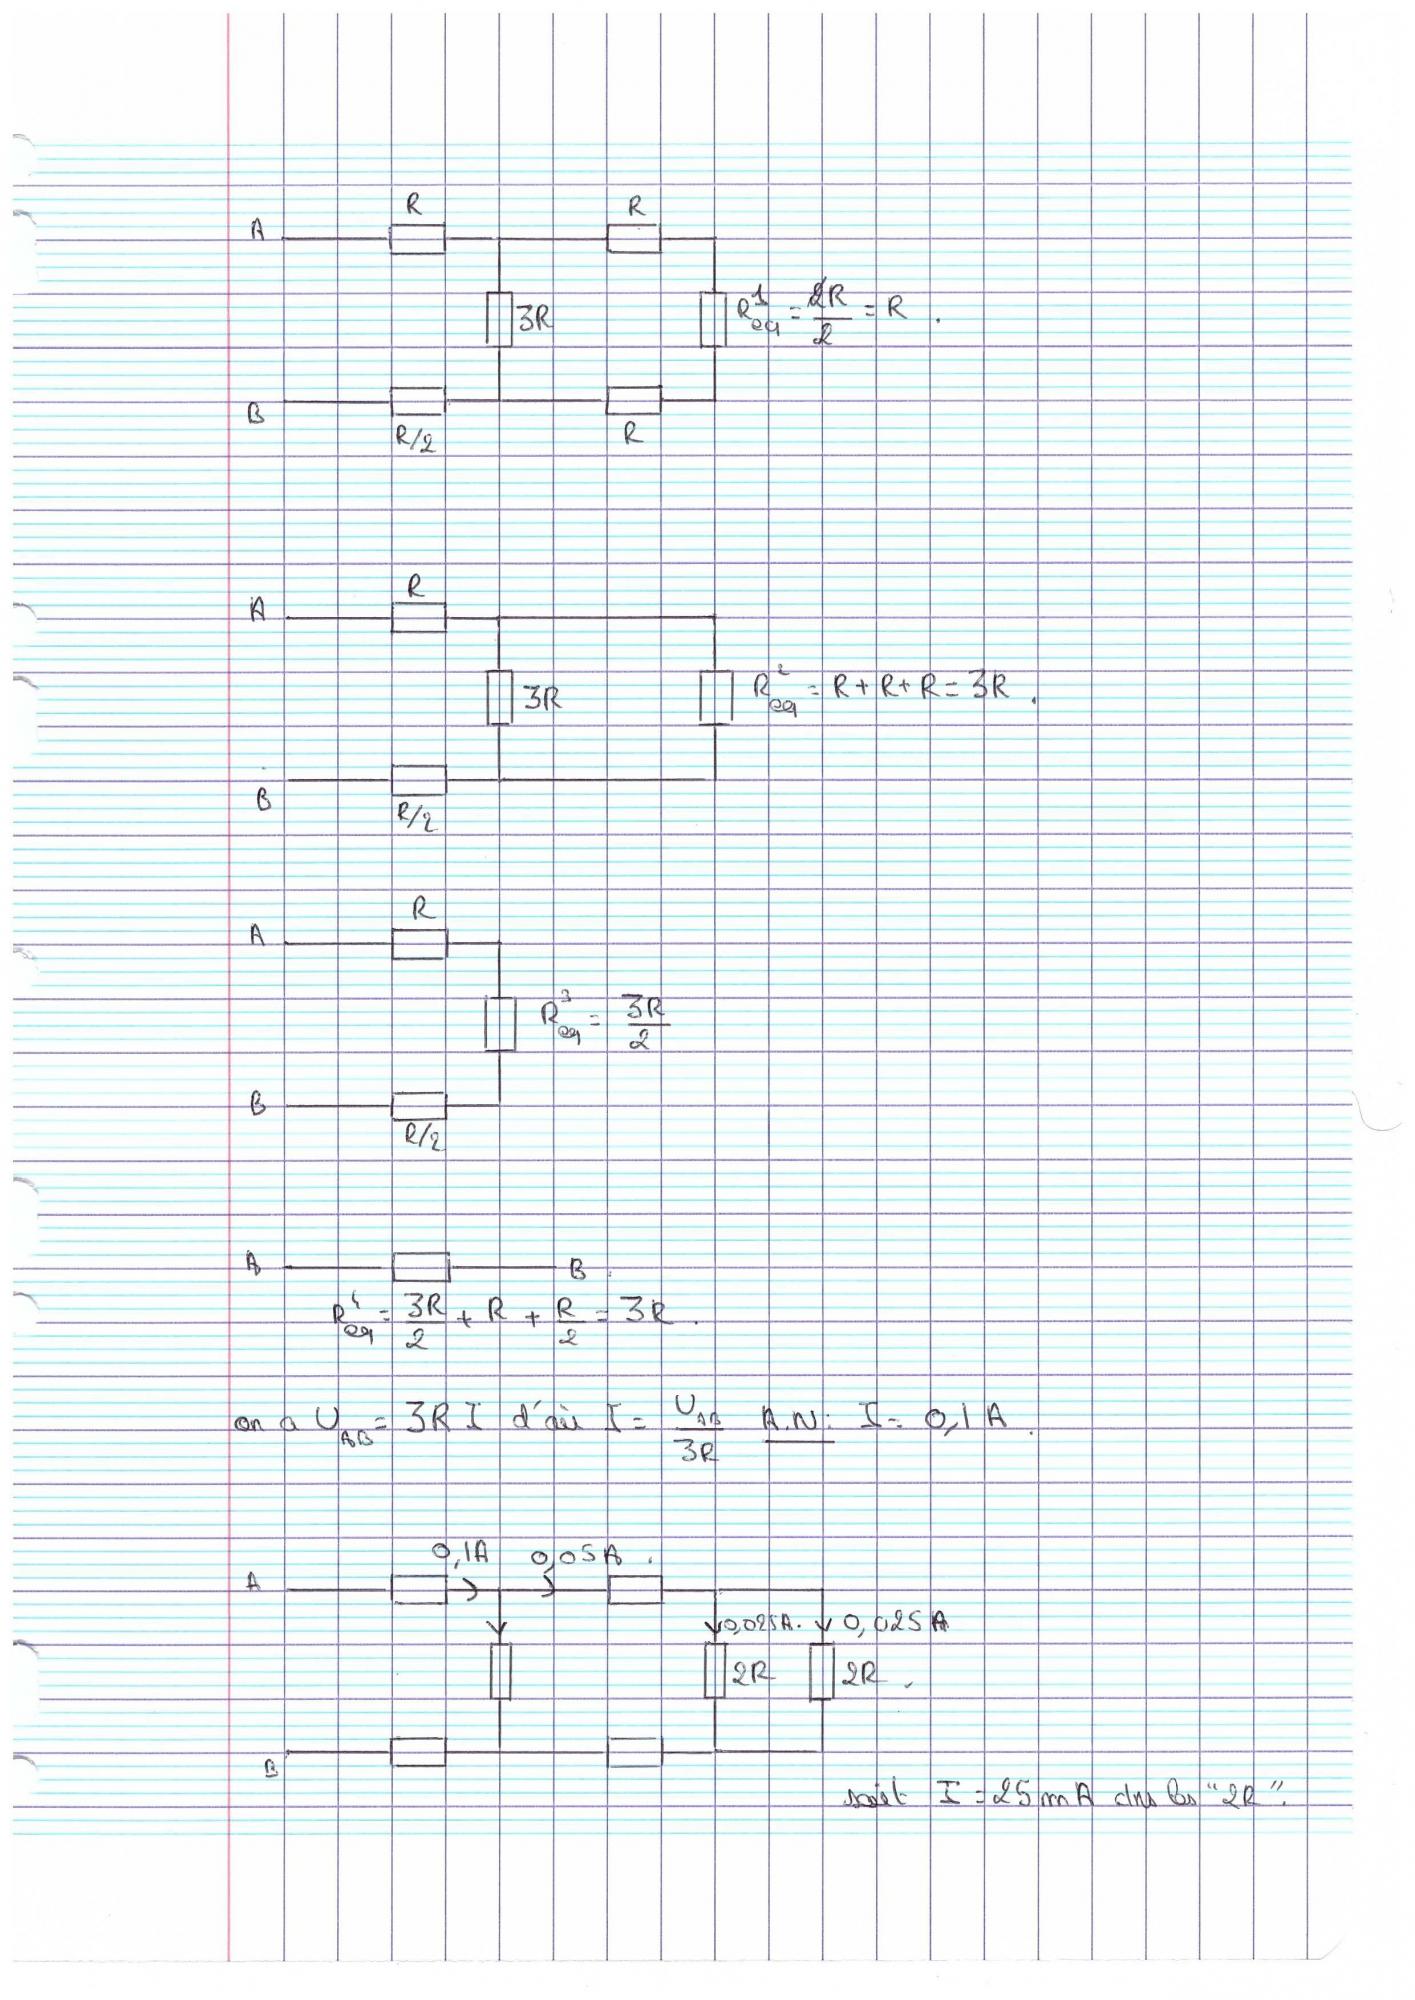 R R
A
3R R¹eq = 2R/2 = R .
B
R/2 R
R
A
3R R²eq = R + R + R = 3R .
B
R/2
R
A
R³eq = 3R/2
B
R/2
A B .
R⁴eq = 3R/2 + R + R/2 = 3R .
on a U_AB = 3R I d'où I = U_AB/3R A.N : I = 0,1 A .
0,1A 0,05A .
A
0,025A . 0,025A
2R 2R .
B
soit I = 25 mA dns les "2R".